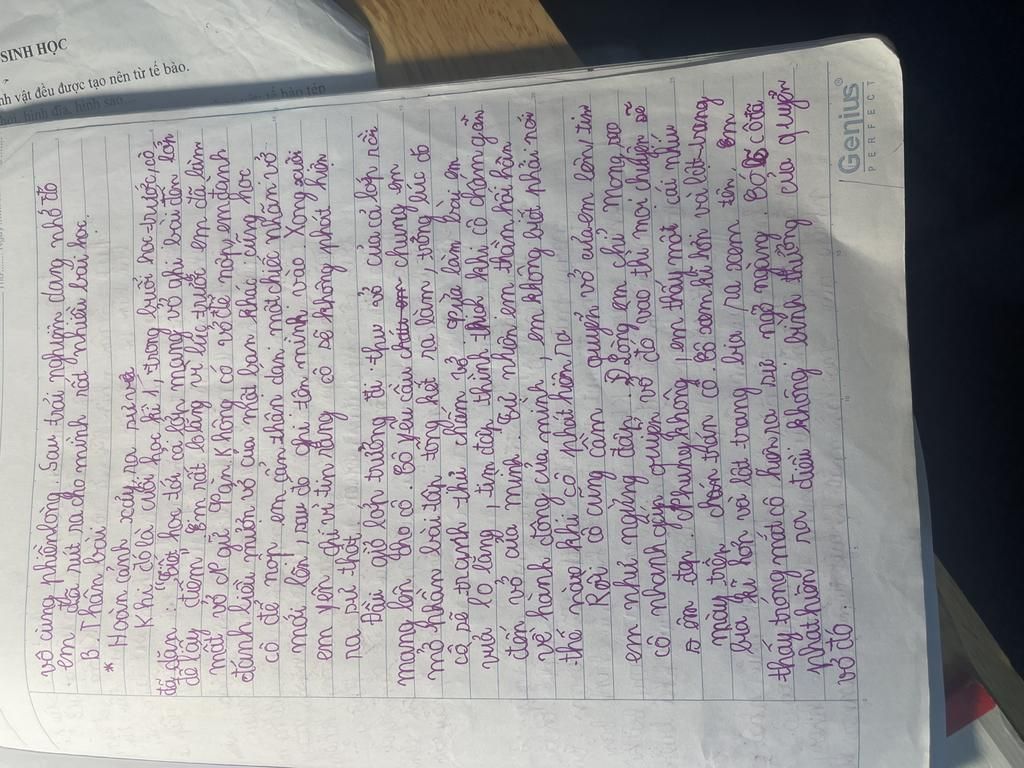 SINH HỌC
nh vật đều được tạo nên từ tế bào.
vô cùng phiền lòng. Sau trải nghiệm đang nhớ đó
em đã rút ra cho mình rất nhiều bài học.
B. Thân bài
* Hoàn cảnh xảy ra sự
Khi đó là cuối học kì 1, trong buổi học trước, cô
đã dặn "Buổi học tới cả lớp mang vở ghi bài đến lớn
để lấy điểm". Em rất lo lắng vì lúc trước em đã làm
mất vở rồi. Tận K không có vở để nộp, em đành
đánh liều mượn vở của một bạn khác cùng học
cô để nộp, em cẩn thận dán một chiếc nhãn vở
mới lên, sau đó ghi tên mình vào. Xong xuôi
em yên chí vì tin rằng cô sẽ không phát hiện
ra sự thật.
Đầu giờ lớp trưởng đi thu vở của cả lớp rồi
mang lên cho cô. Cô yêu cầu chúng em
mở phần bài tập tổng kết ra làm, tổng lúc đó
cô sẽ tranh thủ chấm vở. Vừa làm bài em
vừa lo lắng, tim đập thình thịch khi cô chấm gần
đến vở của mình. Tự nhiên em thầm hối hận
về hành động của mình, em không biết phải nói
thế nào khi cô phát hiện ra.
Rồi cô cũng cầm quyển vở của em lên, tim
em như ngừng đập. Lòng em chỉ mong sao
cô nhanh gấp quyển vở đó vào thì mọi chuyện sẽ
êm đẹp. Nhưng không, em thấy một cái nhíu
mày trên chán cô. Cô xem kĩ hơn và lật trang
bìa kĩ hơn và lật trang bìa ra xem tên. Em
thấy thoáng mắt cô hiện ra sự ngỡ ngàng. Cô đã
phát hiện ra điều không bình thường của quyển
vở đó.
Genius®
PERFECT